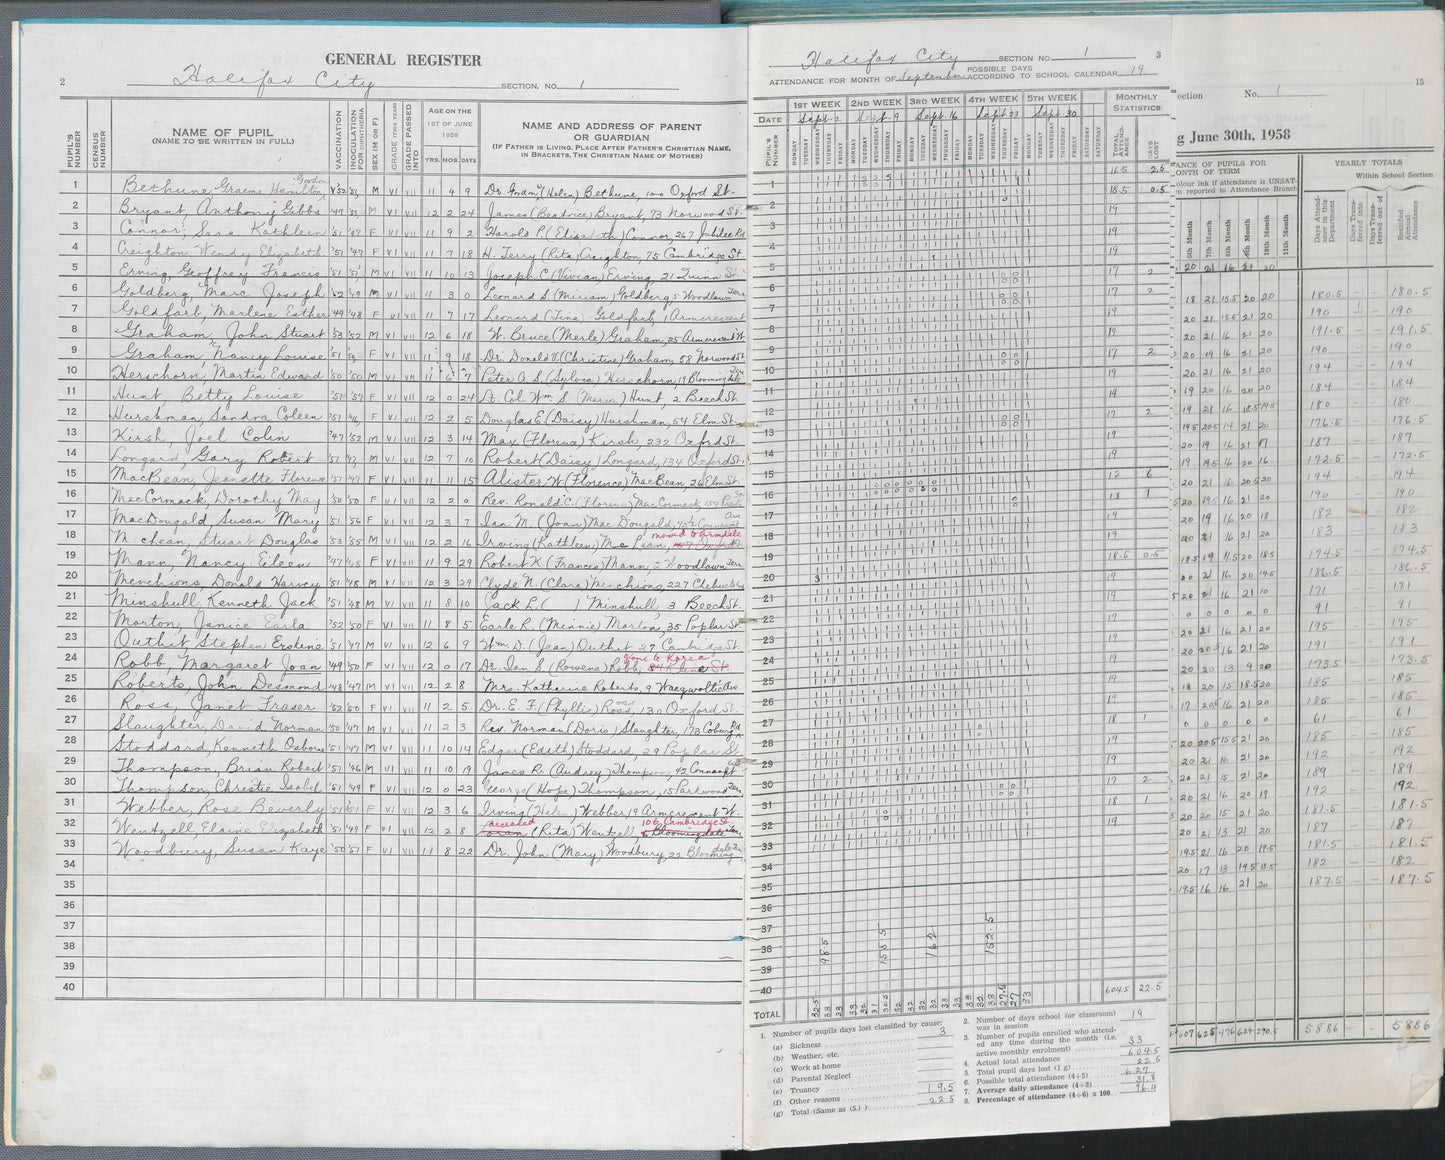 GENERAL REGISTER
2 Halifax City SECTION, NO. 1
PUPIL'S NUMBER
CENSUS NUMBER
NAME OF PUPIL
(NAME TO BE WRITTEN IN FULL)
VACCINATION
INOCULATION FOR DIPHTHERIA
SEX (M or F)
GRADE (THIS YEAR)
GRADE PASSED INTO
AGE ON THE 1ST OF JUNE 1958
YRS. MOS. DAYS
NAME AND ADDRESS OF PARENT
OR GUARDIAN
(IF FATHER IS LIVING, PLACE AFTER FATHER'S CHRISTIAN NAME,
IN BRACKETS, THE CHRISTIAN NAME OF MOTHER)
1 Bethune Graeme Hamilton Gordon '52 '51 M VI VII 11 4 9 Dr. (Helen) Bethune, 100 Oxford St.
2 Bryant, Anthony Gibbs '49 '51 M VI VII 12 2 24 James (Beatrice) Bryant, 73 Norwood St.
3 Connor, Sara Kathleen '51 '47 F VI VII 11 9 2 Harold P. (Elizabeth) Connor, 267 Jubilee Rd
4 Creighton Wendy Elizabeth '51 '47 F VI VII 11 7 18 H. Terry (Rita) Creighton, 75 Cambridge St.
5 Erving, Geoffrey Francis '51 '51 M VI VII 11 10 13 Joseph C. (Vivian) Erving, 21 Quinn St.
6 Goldberg, Marc Joseph '52 '49 M VI VII 11 3 0 Leonard S. (Miriam) Goldberg, 5 Woodlawn Terr
7 Goldfarb, Marlene Esther '49 '48 F VI VII 11 7 17 Leonard (Tina) Goldfarb, 1 Armcrescent
8 Graham, John Stuart '53 '52 M VI VII 12 6 18 W. Bruce (Merle) Graham, 25 Armcrescent W
9 Graham, Nancy Louise '51 F VI VII 11 9 18 Dr. Donald V. (Christine) Graham, 58 Norwood St
10 Herschorn, Martin Edward '50 '50 M VI VII 11 6 7 Peter A. S. (Sylvia) Herschorn, 19 Bloomingdale Terr
11 Hunt, Betty Louise '51 '57 F VI VII 12 0 24 Lt. Col. Wm. S. (Maria) Hunt, 2 Beech St.
12 Hurshman, Sandra Coleen '51 F VI VII 12 2 5 Douglas E. (Daisy) Hurshman, 54 Elm St.
13 Kirsh, Joel Colin '47 '52 M VI VII 12 3 14 Max (Florence) Kirsh, 232 Oxford St.
14 Longard, Gary Robert '51 '47 M VI VII 12 7 10 Robert (Daisy) Longard, 134 Oxford St.
15 MacBean, Jeanette Florence '51 '47 F VI VII 11 11 15 Alister W. (Florence) MacBean, 26 Elm St.
16 MacCormack, Dorothy May '50 '50 F VI VII 12 2 0 Rev. Ronald C. (Florence) MacCormack, 154
17 MacDougald, Susan Mary '51 '56 F VI VII 12 3 7 Ian M. (Joan) MacDougald, Connaught Ave
18 M chean, Stuart Douglas '53 '55 M VI VII 12 2 16 Irving (Kathleen) McLean, moved to Armdale
19 Mann, Nancy Eileen '47 '45 F VI VII 11 9 29 Robert K. (Frances) Mann, 2 Woodlawn Terr
20 Menchions, Donald Harvey '51 '48 M VI VII 12 3 29 Clyde N. (Clara) Menchions, 227 Chebucto
21 Minshull, Kenneth Jack '51 '48 M VI VII 11 8 10 Jack L. ( ) Minshull, 3 Beech St.
22 Morton, Janice Earla '52 '50 F VI VII 11 8 5 Earle R. (Minnie) Morton, 35 Poplar St.
23 Outhit, Stephen Erskine '51 '47 M VI VII 12 6 9 Wm. D. (Jean) Outhit 27 Cambridge St.
24 Robb, Margaret Joan '49 '50 F VI VII 12 0 17 Dr. Ian S. (Rowene) Robb, Kline St gone to Korea
25 Roberts, John Desmond '48 '47 M VI VII 12 2 8 Mrs. Katherine Roberts, 9 Waegwoltic Ave
26 Ross, Janet Fraser '52 '50 F VI VII 11 2 5 Dr. E. F. (Phyllis) Ross, 130 Oxford St.
27 Slaughter, David Norman '50 '47 M VI VII 11 2 3 Rev. Norman (Doris) Slaughter, 173 Coburg Rd
28 Stoddard, Kenneth Osborne '51 '47 M VI VII 11 10 14 Edgar (Edith) Stoddard, 29 Poplar St.
29 Thompson, Brian Robert '51 '46 M VI VII 11 10 19 James R. (Audrey) Thompson, 42 Connaught
30 Thompson, Christie Isobel '51 '49 F VI VII 12 0 23 George (Hope) Thompson, 15 Parkwood Terr
31 Webber, Rose Beverly '51 '51 F VI VII 12 3 6 Irving (Helen) Webber, 19 Armcrescent W.
32 Wentzell, Elaine Elizabeth '51 '49 F VI VII 12 2 8 deceased (Rita) Wentzell, Bloomingdale Terr 106 Cambridge St.
33 Woodbury, Susan Kaye '50 '57 F VI VII 11 8 22 Dr. John (Mary) Woodbury, 22 Bloomingdale Ter
34
35
36
37
38
39
40
Halifax City SECTION NO. 1 3
ATTENDANCE FOR MONTH OF September POSSIBLE DAYS ACCORDING TO SCHOOL CALENDAR 19
1ST WEEK 2ND WEEK 3RD WEEK 4TH WEEK 5TH WEEK MONTHLY STATISTICS
DATE Sept. 2 Sept. 9 Sept. 16 Sept. 23 Sept. 30
PUPIL'S NUMBER
MONDAY TUESDAY WEDNESDAY THURSDAY FRIDAY
SATURDAY SATURDAY
TOTAL ATTENDANCE
DAYS LOST
1 16.5 2.5
2 18.5 0.5
3 19
4 19
5 19
6 17 2
7 17 2
8 19
9 19
10 17 2
11 19
12 19
13 17 2
14 19
15 19
16 12 6
17 18 1
18 19
19 19
20 18.5 0.5
21 19
22 19
23
24
25
26
27
28 18 1
29 19
30 19
31 17 2
32 18 1
33 19
34
35
36
37
38
39
40
98.5 158.5 162 152.5
TOTAL 32.5 33 33 33 32 31 30.5 32 32 32 32 33 33 33 32 33 27.5 27 33 604.5 22.5
1. Number of pupils days lost classified by cause:
(a) Sickness 3
(b) Weather, etc.
(c) Work at home
(d) Parental Neglect
(e) Truancy
(f) Other reasons 19.5
(g) Total (Same as (5.) ) 22.5
2. Number of days school (or classroom) was in session 19
3. Number of pupils enrolled who attended any time during the month (i.e. active monthly enrolment) 33
4. Actual total attendance 604.5
5. Total pupil days lost (1 g) 22.5
6. Possible total attendance (4+5) 627
7. Average daily attendance (4÷2) 31.8
8. Percentage of attendance (4÷6) x 100 96.4
15
ection No. 1
g June 30th, 1958
ANCE OF PUPILS FOR
ONTH OF TERM
olour ink if attendance is UNSAT-
n reported to Attendance Branch
YEARLY TOTALS
Within School Section
6th Month 7th Month 8th Month 9th Month 10th Month 11th Month
Days Attendance in this Department
Days Transferred into
Days Transferred out of
Rectified Annual Attendance
20 21 16 21 20
18 21 15.5 20 20 180.5 — — 180.5
20 21 15.5 21 20 190 — — 190
20 21 16 21 20 191.5 — — 191.5
20 19 16 21 20 190 — — 190
20 21 16 21 20 194 — — 194
19 20 16 20 20 184 — — 184
19 21 16 18.5 19.5 180 — — 180
19.5 20.5 14 21 20 176.5 — — 176.5
20 19 16 21 17 187 — — 187
19 19.5 16 20 16 172.5 — — 172.5
20 21 16 20.5 20 194 — — 194
20 19.5 16 21 20 190 — — 190
20 19 16 20 18 182 — — 182
20 21 16 21 20 183 — — 183
18.5 19 11.5 20 18.5 174.5 — — 174.5
20 21 16 20 19.5 186.5 — — 186.5
20 21 16 21 10 171 — — 171
0 0 0 0 0 91 — — 91
20 21 16 21 20 195 — — 195
20 20.5 16 21 20 191 — — 191
20 20 13 9 20 173.5 — — 173.5
18 20 15 18.5 20 185 — — 185
17 20.5 16 21 20 185 — — 185
0 0 0 0 0 61 — — 61
20 20.5 15.5 21 20 185 — — 185
20 21 16 21 20 192 — — 192
20 21 15 21 20 189 — — 189
20 21 16 20 19 192 — — 192
20 20 15 21 20 181.5 — — 181.5
20 21 13 21 20 187 — — 187
19.5 21 16 20 19.5 181.5 — — 181.5
20 17 13 19.5 18.5 182 — — 182
19.5 16 16 21 20 187.5 — — 187.5
607 625 476 624 590.5 5886 — — 5886